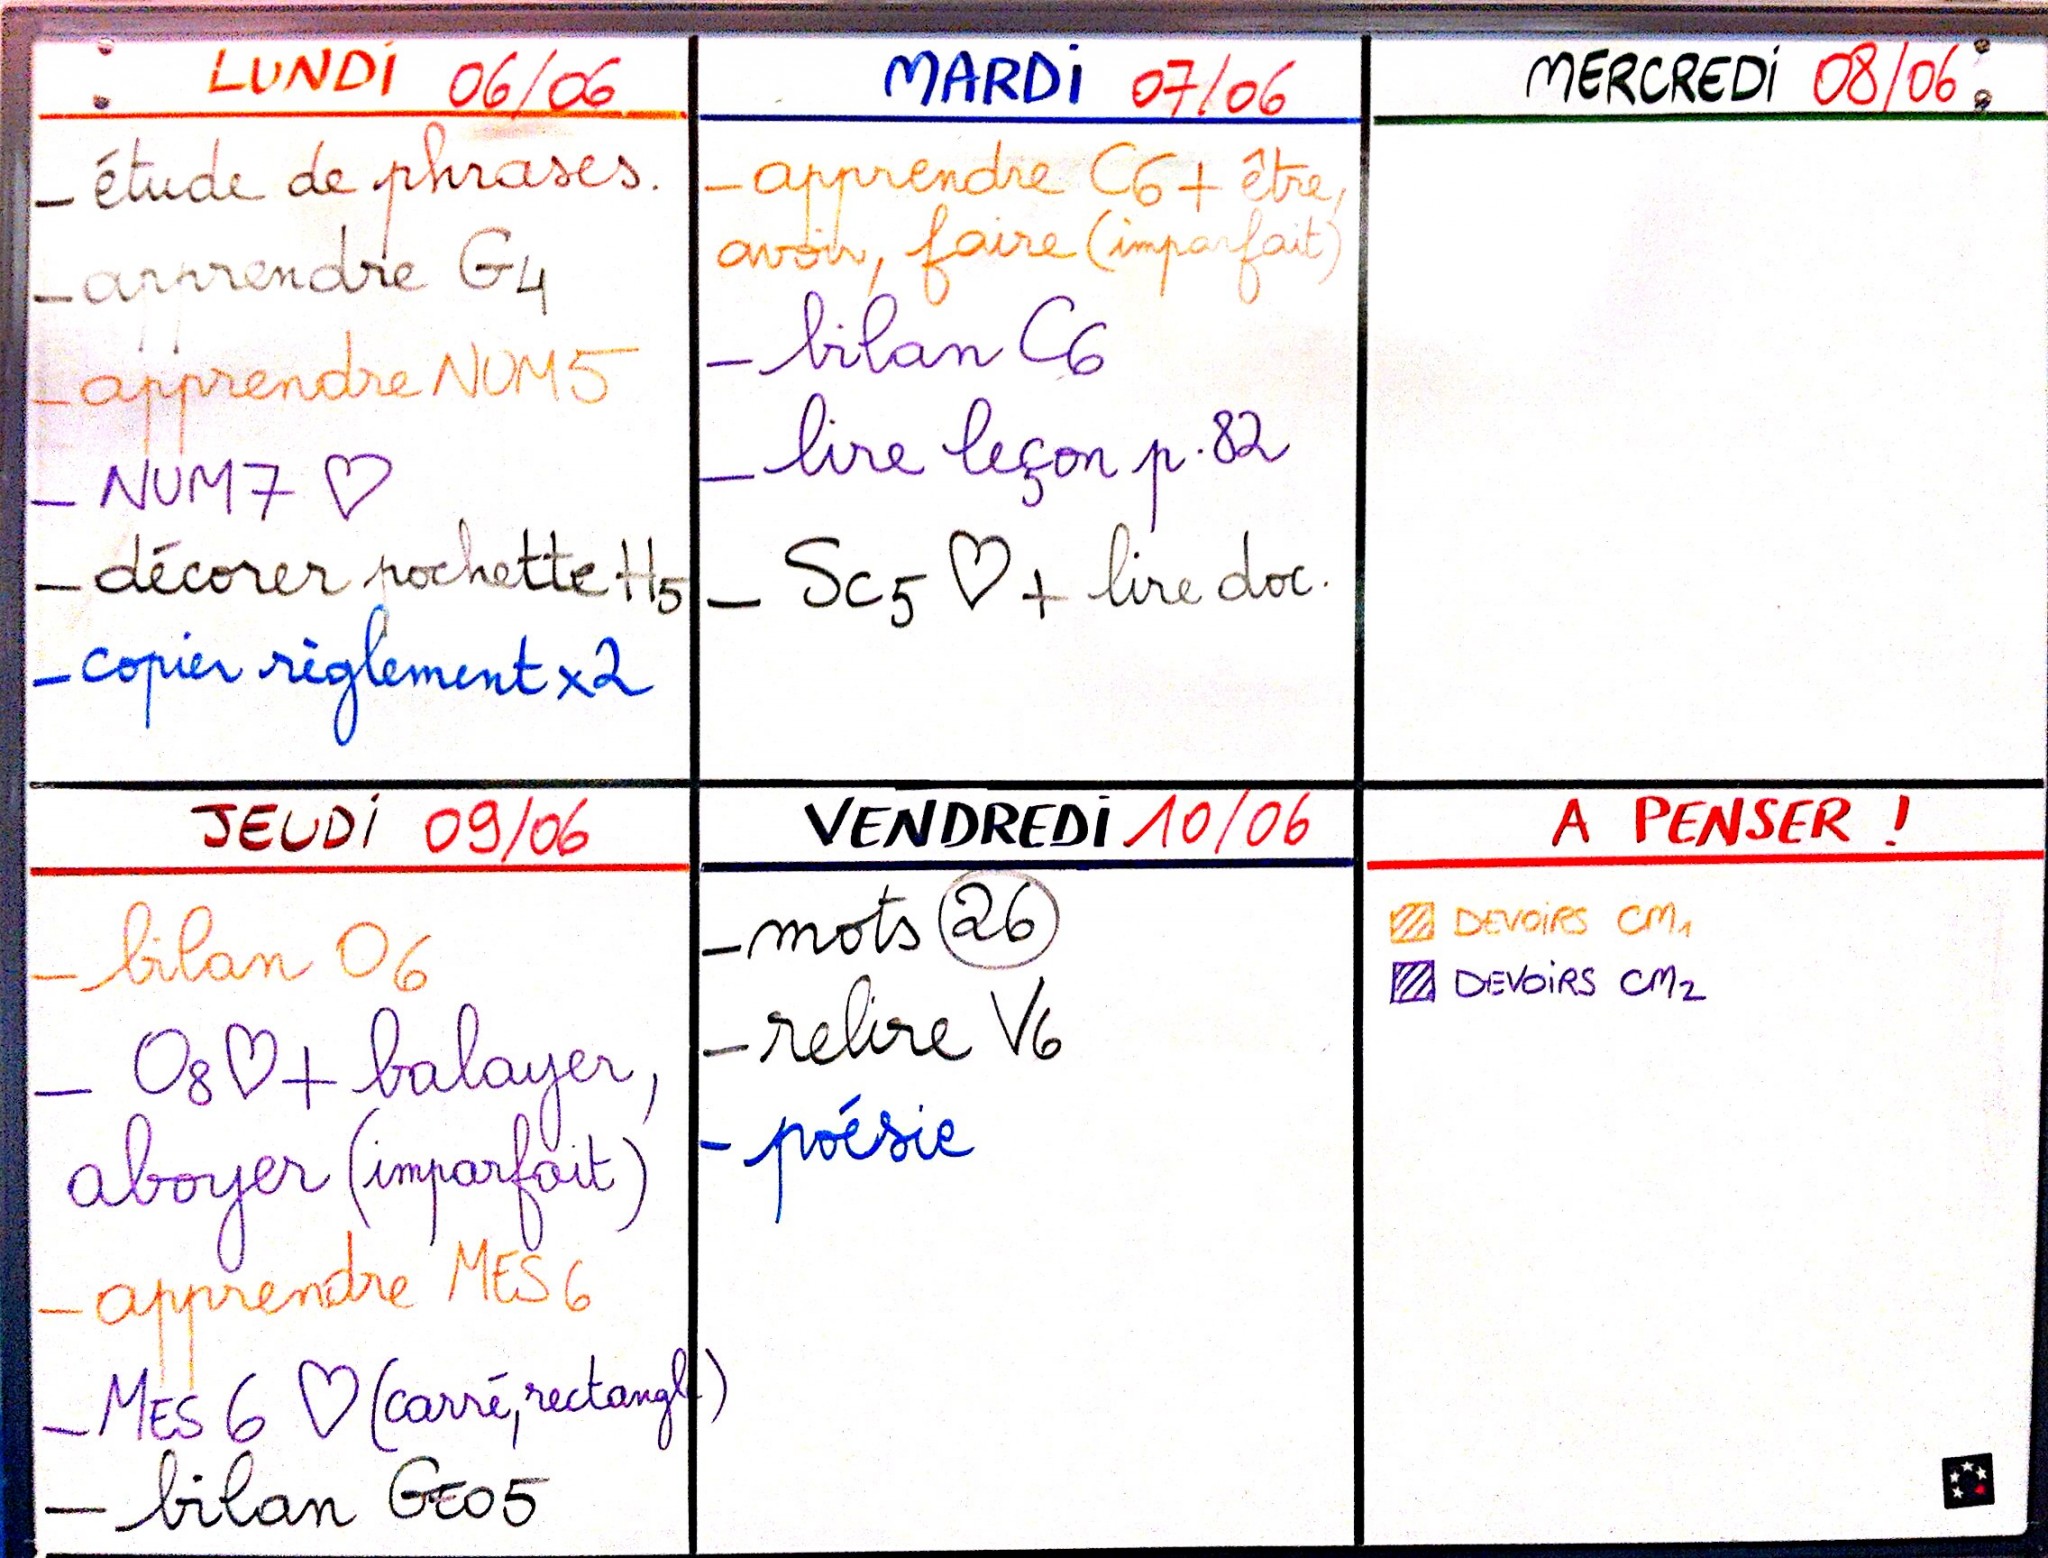 LUNDI 06/06
- étude de phrases.
- apprendre G4
- apprendre NUM5
- NUM7 ♡
- décorer pochette H5
- copier règlement x2
MARDI 07/06
- apprendre C6 + être,
avoir, faire (imparfait)
- bilan C6
- lire leçon p.82
- Sc5 ♡ + lire doc.
MERCREDI 08/06
JEUDI 09/06
- bilan O6
- O8 ♡ + balayer,
aboyer (imparfait)
- apprendre MES 6
- MES 6 ♡ (carré, rectangle)
- bilan GEO5
VENDREDI 10/06
- mots 26
- relire V6
- poésie
A PENSER !
DEVOIRS CM1
DEVOIRS CM2